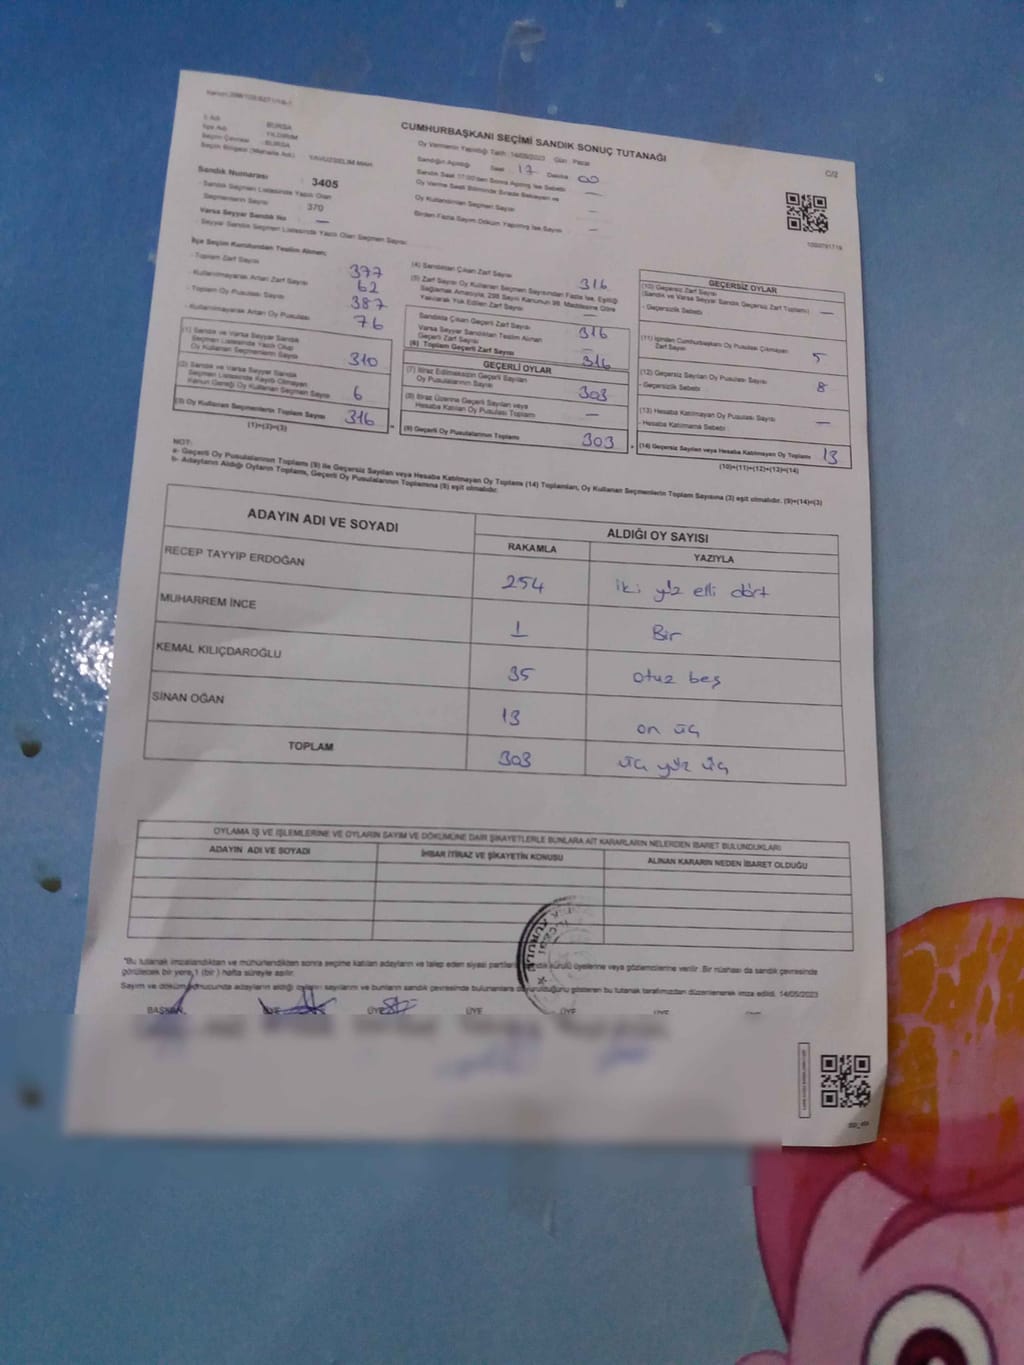 CUMHURBAŞKANI SEÇİMİ SANDIK SONUÇ TUTANAĞI
C/2
İli Adı : BURSA
İlçe Adı : YILDIRIM
Seçim Çevresi : BURSA
Seçim Bölgesi (Mahalle Adı) : YAVUZSELİM MAH.
Oy Vermenin Yapıldığı Tarih : 14/05/2023 Gün : Pazar
Sandığın Açıldığı Saat : 17 Dakika : 00
Sandık Saat 17:00'den Sonra Açılmış İse Sebebi —
Oy Verme Saati Bitiminde Sırada Bekleyen ve
Oy Kullandırılan Seçmen Sayısı —
Birden Fazla Sayım Döküm Yapılmış İse Sayısı —
Sandık Numarası : 3405
- Sandık Seçmen Listesinde Yazılı Olan
Seçmenlerin Sayısı : 370
Varsa Seyyar Sandık No : —
- Seyyar Sandık Seçmen Listesinde Yazılı Olan Seçmen Sayısı :
İlçe Seçim Kurulundan Teslim Alınan;
- Toplam Zarf Sayısı 377
- Kullanılmayarak Artan Zarf Sayısı 62
- Toplam Oy Pusulası Sayısı 387
- Kullanılmayarak Artan Oy Pusulası 76
(1) Sandık ve Varsa Seyyar Sandık
Seçmen Listesinde Yazılı Olup
Oy Kullanan Seçmenlerin Sayısı 310
(2) Sandık ve Varsa Seyyar Sandık
Seçmen Listesinde Kaydı Olmayan
Kanun Gereği Oy Kullanan Seçmen Sayısı 6
(3) Oy Kullanan Seçmenlerin Toplam Sayısı 316
(1)+(2)=(3)
(4) Sandıktan Çıkan Zarf Sayısı 316
(5) Zarf Sayısı Oy Kullanan Seçmen Sayısından Fazla İse, Eşitliği
Sağlamak Amacıyla, 298 Sayılı Kanunun 98. Maddesine Göre
Yakılarak Yok Edilen Zarf Sayısı —
Sandıkta Çıkan Geçerli Zarf Sayısı 316
Varsa Seyyar Sandıktan Teslim Alınan
Geçerli Zarf Sayısı —
(6) Toplam Geçerli Zarf Sayısı 316
GEÇERLİ OYLAR
(7) İtiraz Edilmeksizin Geçerli Sayılan
Oy Pusulalarının Sayısı 303
(8) İtiraz Üzerine Geçerli Sayılan veya
Hesaba Katılan Oy Pusulası Toplamı —
(9) Geçerli Oy Pusulalarının Toplamı 303
GEÇERSİZ OYLAR
(10) Geçersiz Zarf Sayısı
(Sandık ve Varsa Seyyar Sandık Geçersiz Zarf Toplamı) —
- Geçersizlik Sebebi :
(11) İçinden Cumhurbaşkanı Oy Pusulası Çıkmayan
Zarf Sayısı 5
(12) Geçersiz Sayılan Oy Pusulası Sayısı 8
- Geçersizlik Sebebi :
(13) Hesaba Katılmayan Oy Pusulası Sayısı —
- Hesaba Katılmama Sebebi :
(14) Geçersiz Sayılan veya Hesaba Katılmayan Oy Toplamı 13
(10)+(11)+(12)+(13)=(14)
NOT:
a- Geçerli Oy Pusulalarının Toplamı (9) ile Geçersiz Sayılan veya Hesaba Katılmayan Oy Toplamı (14) Toplamları, Oy Kullanan Seçmenlerin Toplam Sayısına (3) eşit olmalıdır. (9)+(14)=(3)
b- Adayların Aldığı Oyların Toplamı, Geçerli Oy Pusulalarının Toplamına (9) eşit olmalıdır.
ADAYIN ADI VE SOYADI
ALDIĞI OY SAYISI
RAKAMLA YAZIYLA
RECEP TAYYİP ERDOĞAN 254 iki yüz elli dört
MUHARREM İNCE 1 Bir
KEMAL KILIÇDAROĞLU 35 otuz beş
SİNAN OĞAN 13 on üç
TOPLAM 303 üç yüz üç
OYLAMA İŞ VE İŞLEMLERİNE VE OYLARIN SAYIM VE DÖKÜMÜNE DAİR ŞİKAYETLERLE BUNLARA AİT KARARLARIN NELERDEN İBARET BULUNDUKLARI
ADAYIN ADI VE SOYADI İHBAR İTİRAZ VE ŞİKAYETİN KONUSU ALINAN KARARIN NEDEN İBARET OLDUĞU
*Bu tutanak imzalandıktan ve mühürlendikten sonra seçime katılan adayların ve talep eden siyasi partilerin sandık kurulu üyelerine veya gözlemcilerine verilir. Bir nüshası da sandık çevresinde
görülecek bir yere 1 (bir) hafta süreyle asılır.
Sayım ve döküm sonucunda adayların aldığı oyların sayılarını ve bunların sandık çevresinde bulunanlara duyurulduğunu gösteren bu tutanak tarafımızdan düzenlenerek imza edildi. 14/05/2023
BAŞKAN ÜYE ÜYE ÜYE ÜYE ÜYE ÜYE